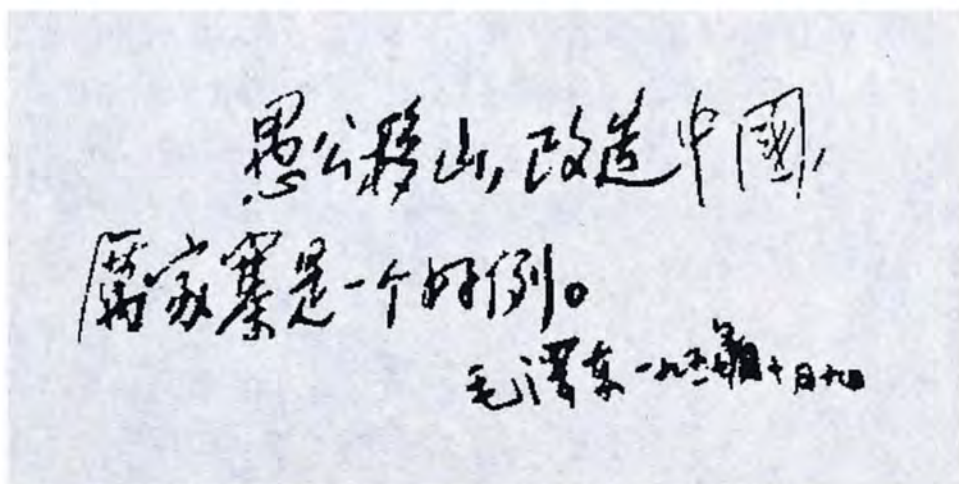 愚公移山,改造中國,
厲家寨是一个好例。
毛澤东一九五七年十月九日